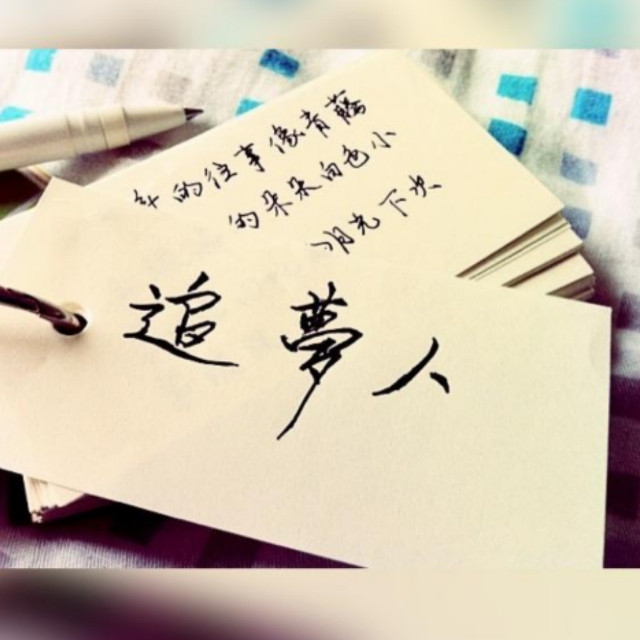 年的往事像青藤
的朵朵白色小
明光下次
追夢人